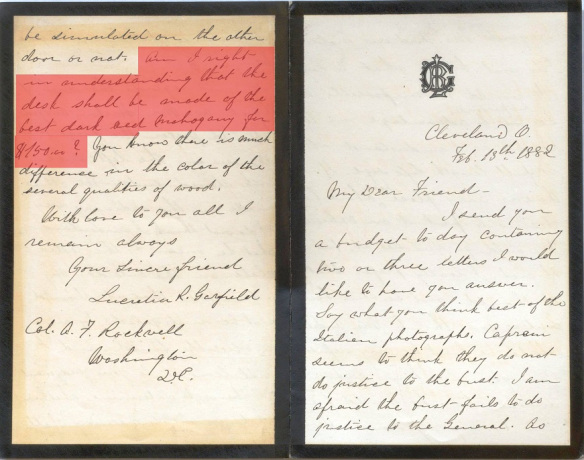 be simulated on the other
door or not. Am I right
in understanding that the
desk shall be made of the
best dark red Mahogany for
$150.00? You know there is much
difference in the color of the
several qualities of wood.
With love to you all I
remain always
Your sincere friend
Lucretia R. Garfield
Col. A. F. Rockwell
Washington
D.C.
Cleveland O.
Feb. 13th 1882
My Dear Friend -
I send you
a budget to day containing
two or three letters I would
like to have you answer.
Say what you think best of the
Italian photographs. Caproni
seems to think they do not
do justice to the bust. I am
afraid the bust fails to do
justice to the General. As